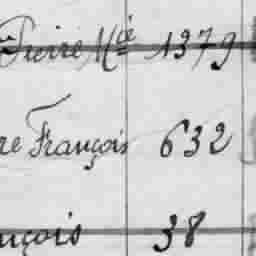 Pierre Mie 1379
re François 632
nçois 38